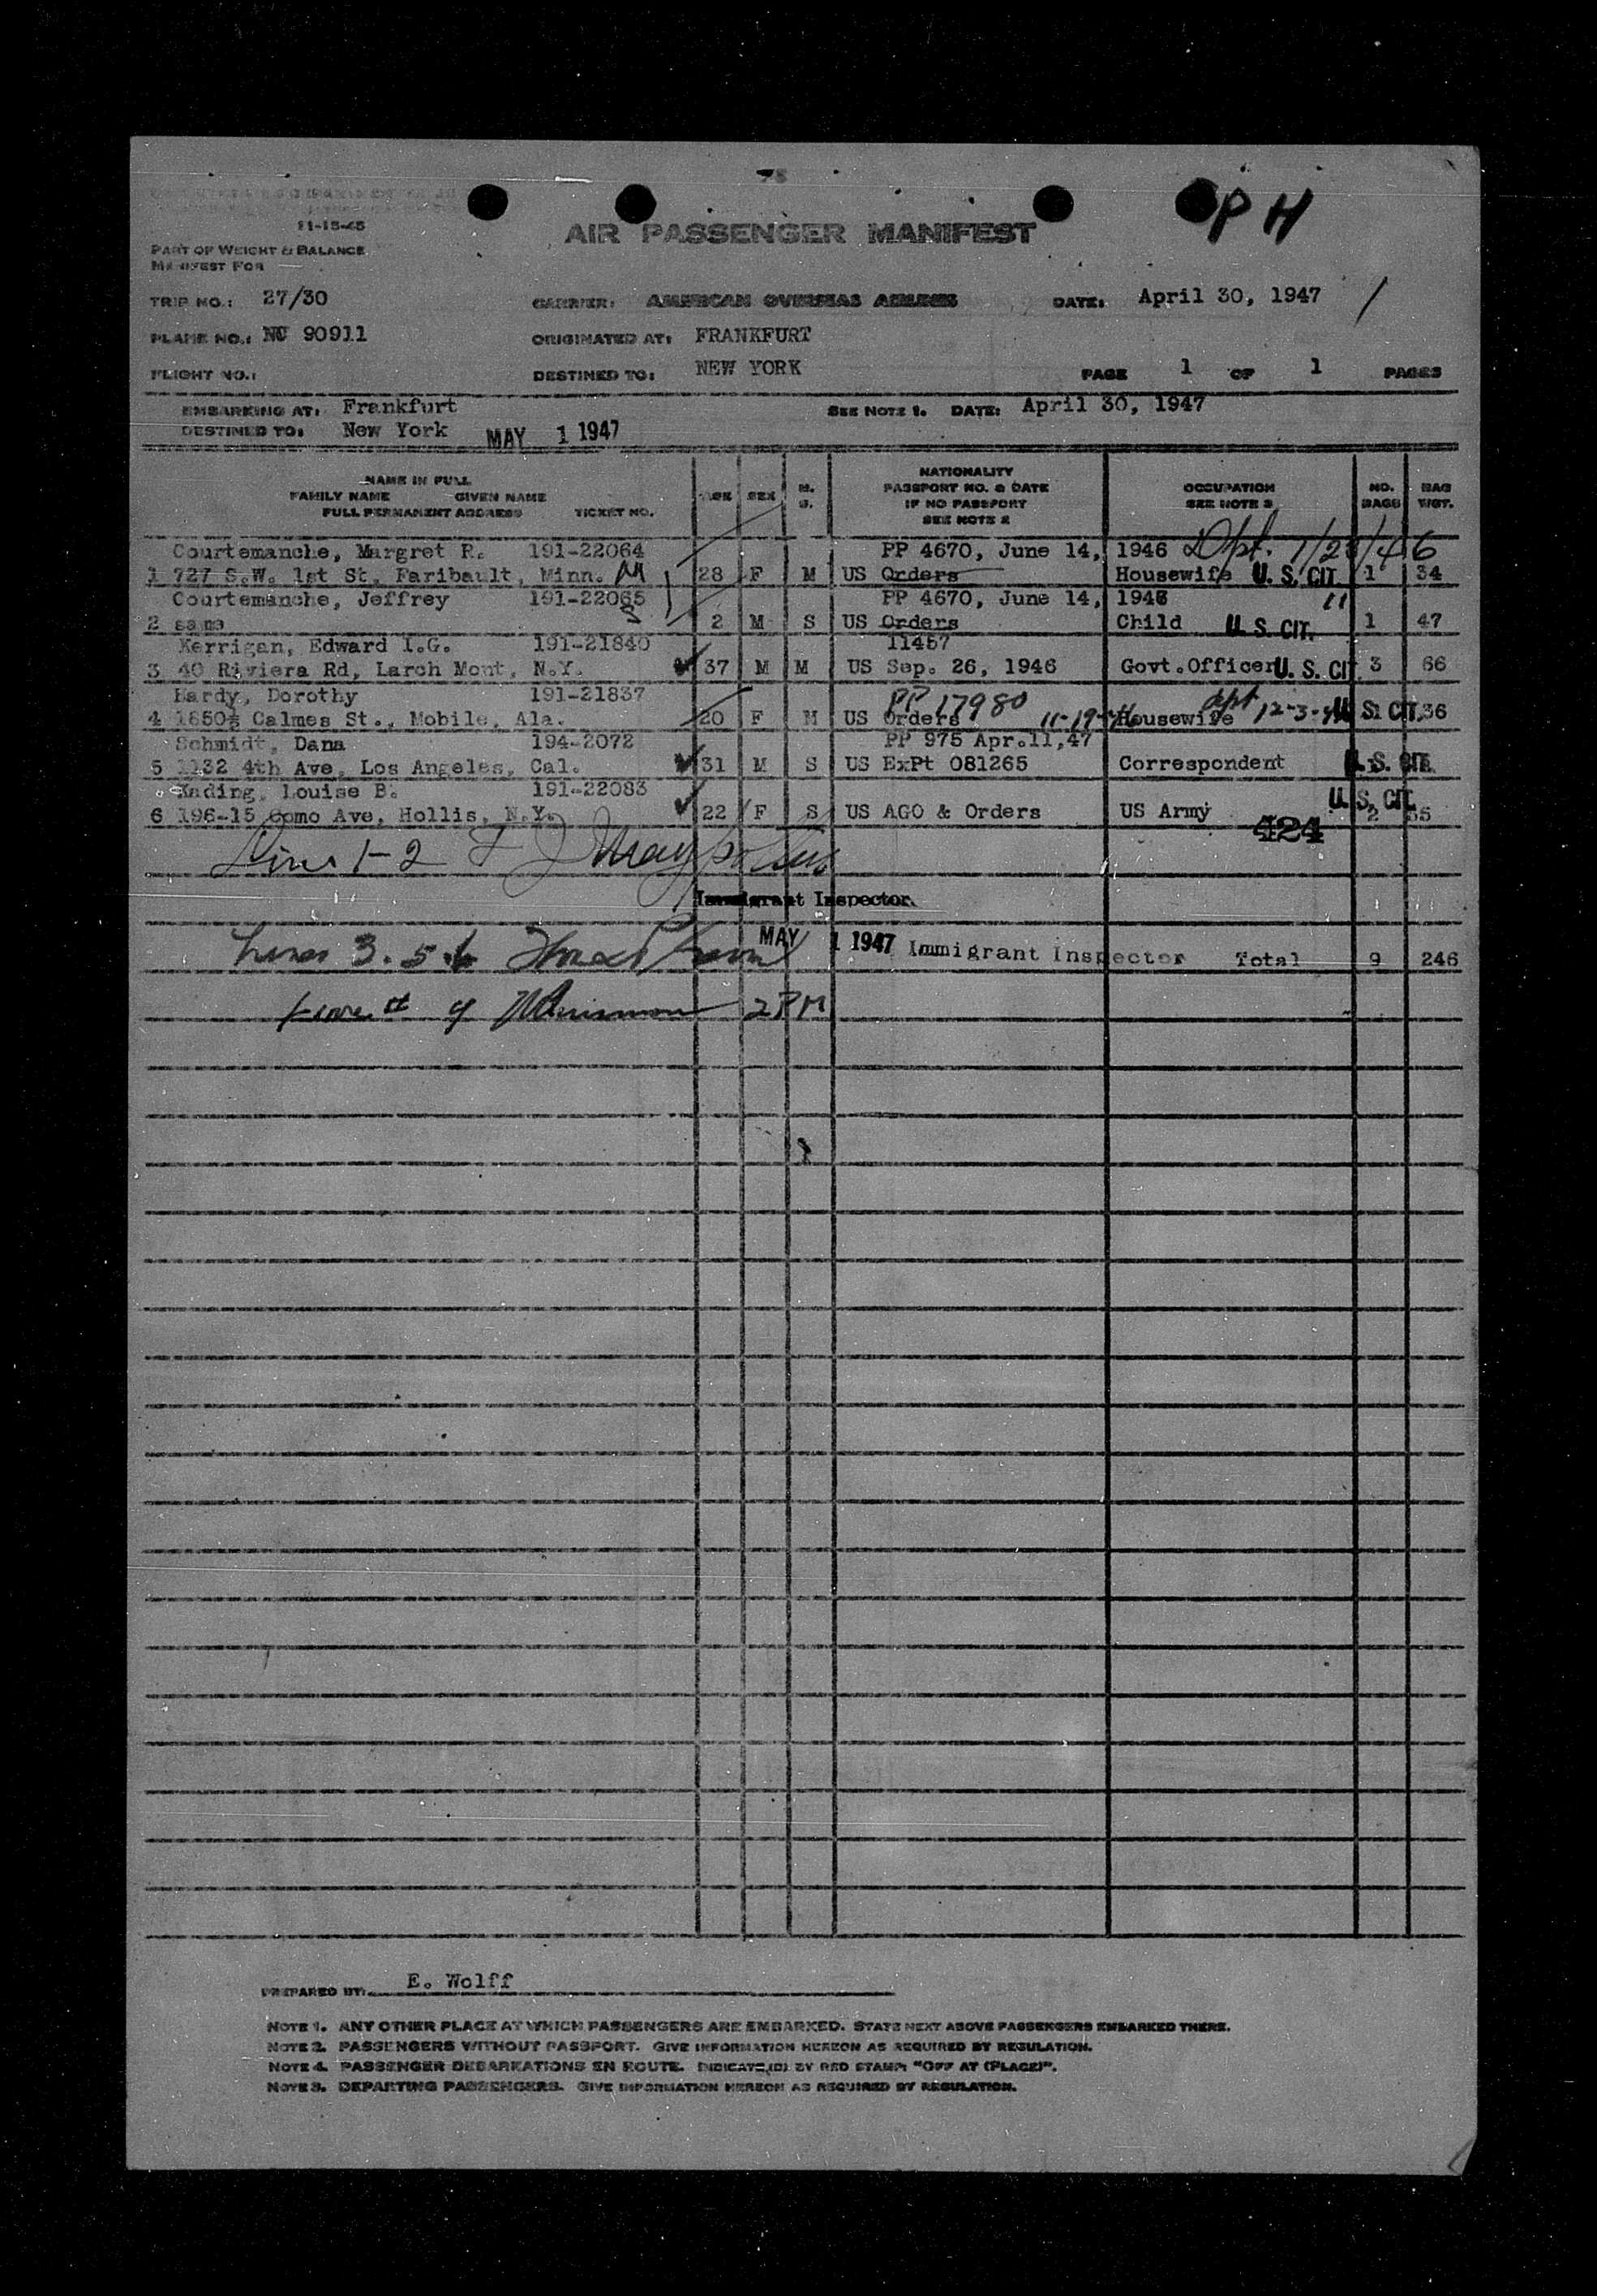 11-15-45
PH
AIR PASSENGER MANIFEST
PART OF WEIGHT & BALANCE
MANIFEST FOR
TRIP NO.: 27/30 CARRIER: AMERICAN OVERSEAS AIRLINES DATE: April 30, 1947
PLANE NO.: NC 90911 ORIGINATED AT: FRANKFURT
FLIGHT NO.: DESTINED TO: NEW YORK PAGE 1 OF 1 PAGES
EMBARKING AT: Frankfurt SEE NOTE 1. DATE: April 30, 1947
DESTINED TO: New York MAY 1 1947
NAME IN FULL
FAMILY NAME GIVEN NAME
FULL PERMANENT ADDRESS TICKET NO.
AGE SEX M. S.
NATIONALITY
PASSPORT NO. & DATE
IF NO PASSPORT
SEE NOTE 2
OCCUPATION
SEE NOTE 3
NO. BAGS
BAG WGT.
Courtemanche, Margret R. 191-22064 PP 4670, June 14, 1946 Dpt.
1 727 S.W. 1st St, Faribault, Minn. M 28 F M US Orders Housewife U. S. CIT. 1 34
Courtemanche, Jeffrey 191-22065 PP 4670, June 14, 1946 "
2 same S 2 M S US Orders Child U. S. CIT. 1 47
Kerrigan, Edward I.G. 191-21840 11457
3 40 Riviera Rd, Larch Mont, N.Y. 37 M M US Sep. 26, 1946 Govt.Officer U. S. CIT. 3 66
Hardy, Dorothy 191-21837 PP 17980 dpt
4 1850½ Calmes St., Mobile, Ala. 20 F M US Orders Housewife U. S. CIT. 1 36
Schmidt, Dana 194-2072 PP 975 Apr.11,47
5 1132 4th Ave, Los Angeles, Cal. 31 M S US ExPt 081265 Correspondent U. S. CIT.
Kading, Louise B. 191-22083 U. S. CIT.
6 196-15 Como Ave, Hollis, N.Y. 22 F S US AGO & Orders US Army 2 55
424
Lines 1-2
Immigrant Inspector.
Lines 3. 5. 6 MAY 1 1947 Immigrant Inspector Total 9 246
2 PM
PREPARED BY: E. Wolff
NOTE 1. ANY OTHER PLACE AT WHICH PASSENGERS ARE EMBARKED. STATE NEXT ABOVE PASSENGERS EMBARKED THERE.
NOTE 2. PASSENGERS WITHOUT PASSPORT. GIVE INFORMATION HEREON AS REQUIRED BY REGULATION.
NOTE 4. PASSENGER DEBARKATIONS EN ROUTE. INDICATE (D) BY RED STAMP: "OFF AT (PLACE)".
NOTE 3. DEPARTING PASSENGERS. GIVE INFORMATION HEREON AS REQUIRED BY REGULATION.